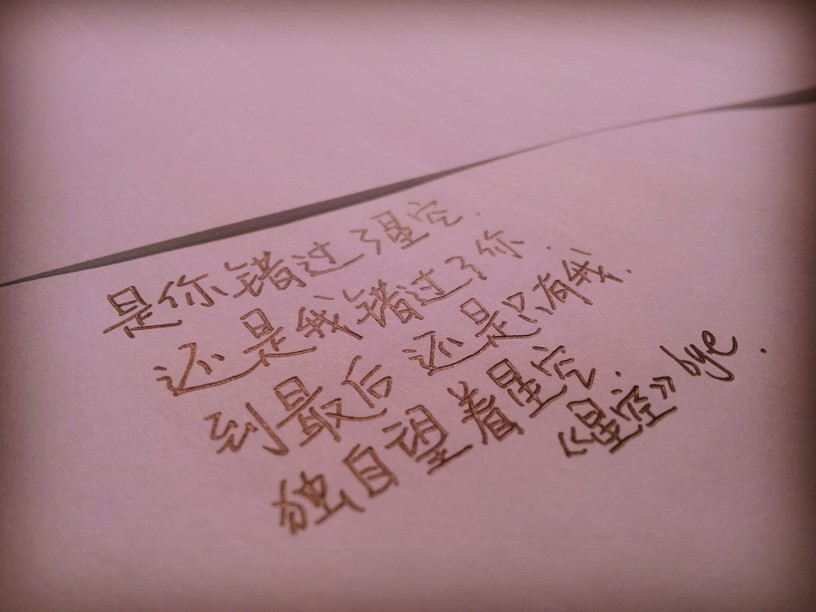 是你错过了星空.
还是我错过了你.
到最后 还是只有我.
独自望着星空.
《星空》bye.